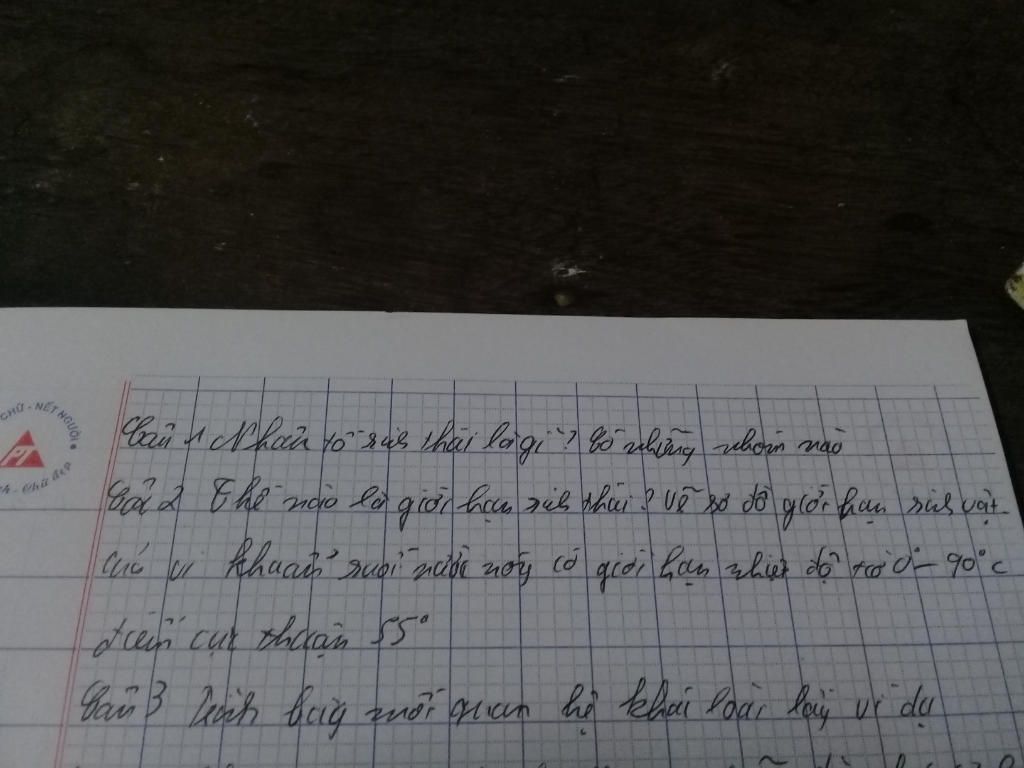 CHỮ - NẾT NGƯỜI
Câu 1 Nhân tố sinh thái là gì? Có những nhóm nào
Câu 2 Thế nào là giới hạn sinh thái? Vẽ sơ đồ giới hạn sinh vật
của vi khuẩn suối nước nóng có giới hạn nhiệt độ từ 0° - 90°C
điểm cực thuận 55°
Câu 3 Trình bày mối quan hệ khác loài lấy ví dụ